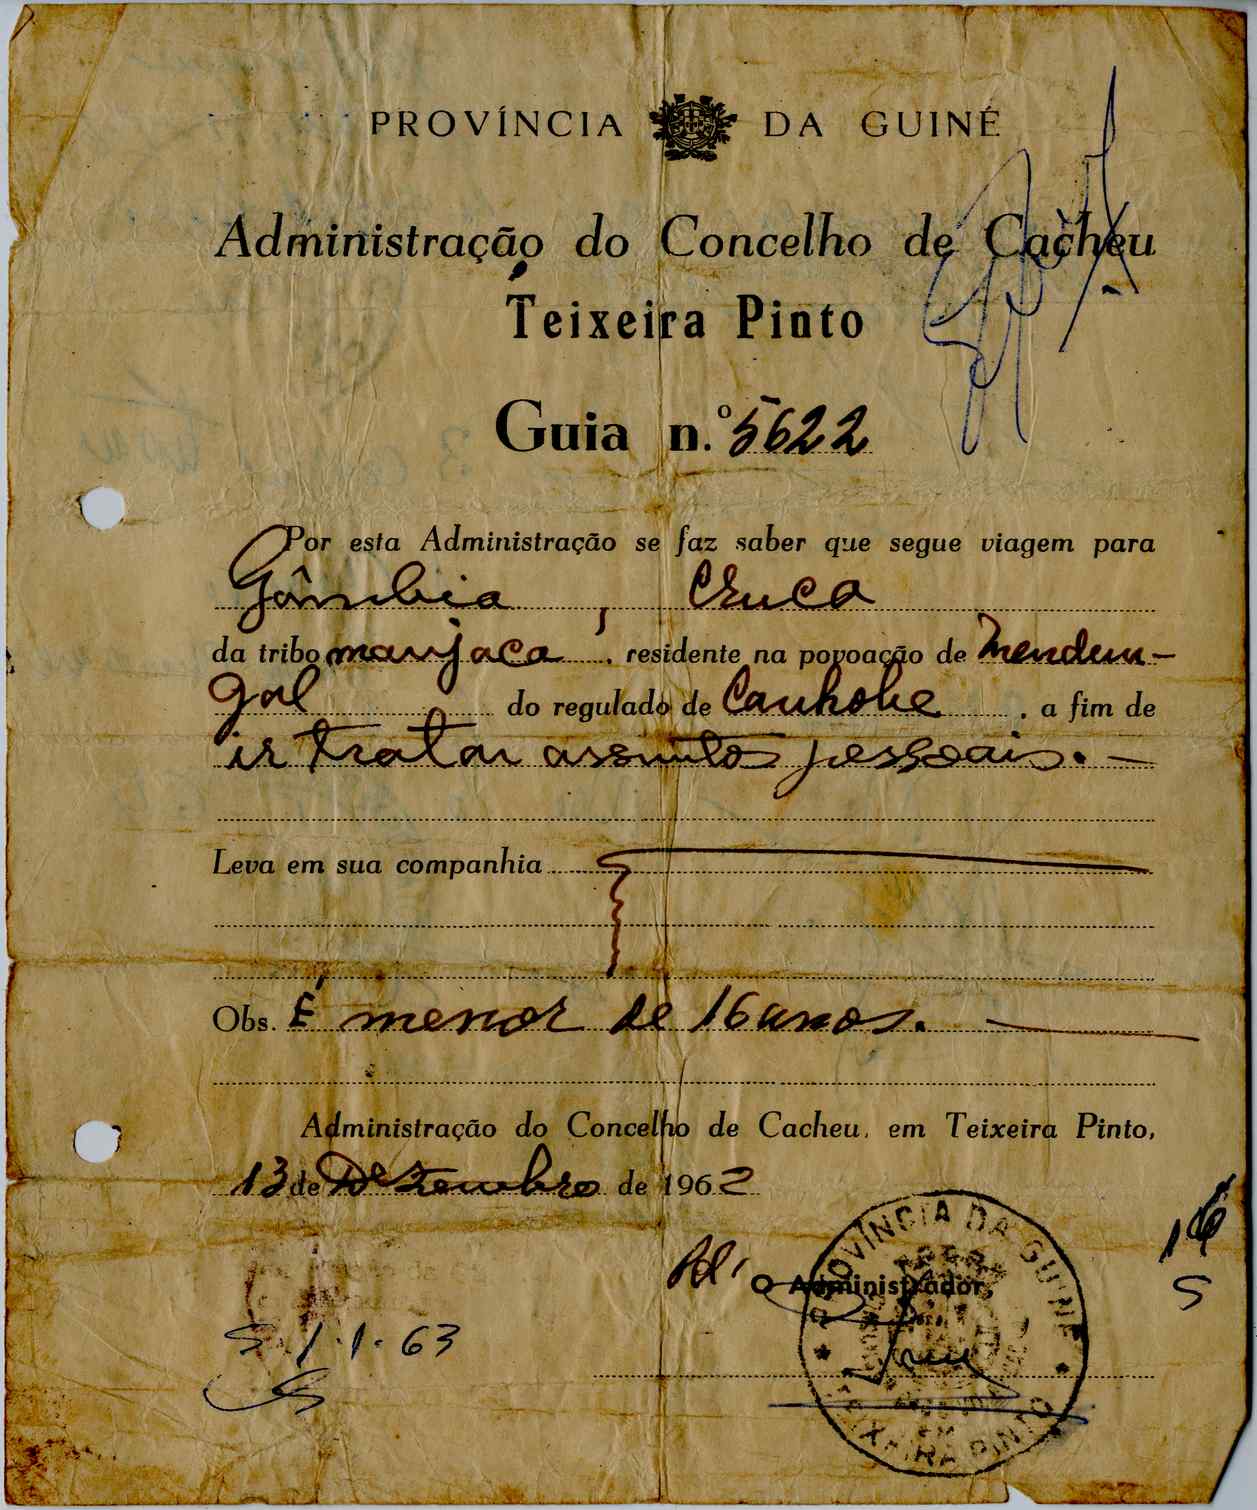 PROVÍNCIA DA GUINÉ
Administração do Concelho de Cacheu
Teixeira Pinto
Guia n.º 5622
Por esta Administração se faz saber que segue viagem para
Gâmbia, Cruca
da tribo manjaca, residente na povoação de Mendem-
gal do regulado de Canhobe, a fim de
ir tratar assuntos pessoais. —
Leva em sua companhia
Obs. É menor de 16 anos. —
Administração do Concelho de Cacheu, em Teixeira Pinto,
13 de Dezembro de 1962
O Administrador,
PROVÍNCIA DA GUINÉ
TEIXEIRA PINTO
S. 1.1.63
16
S